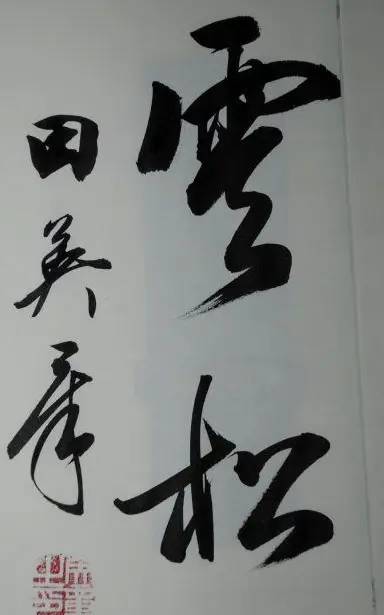 雲松
田英章